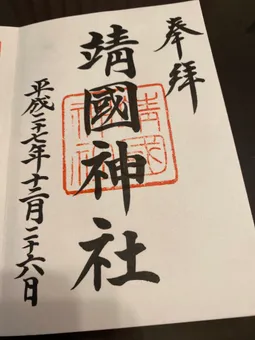 奉拝
靖國神社
平成二十七年十二月二十六日
靖國神社